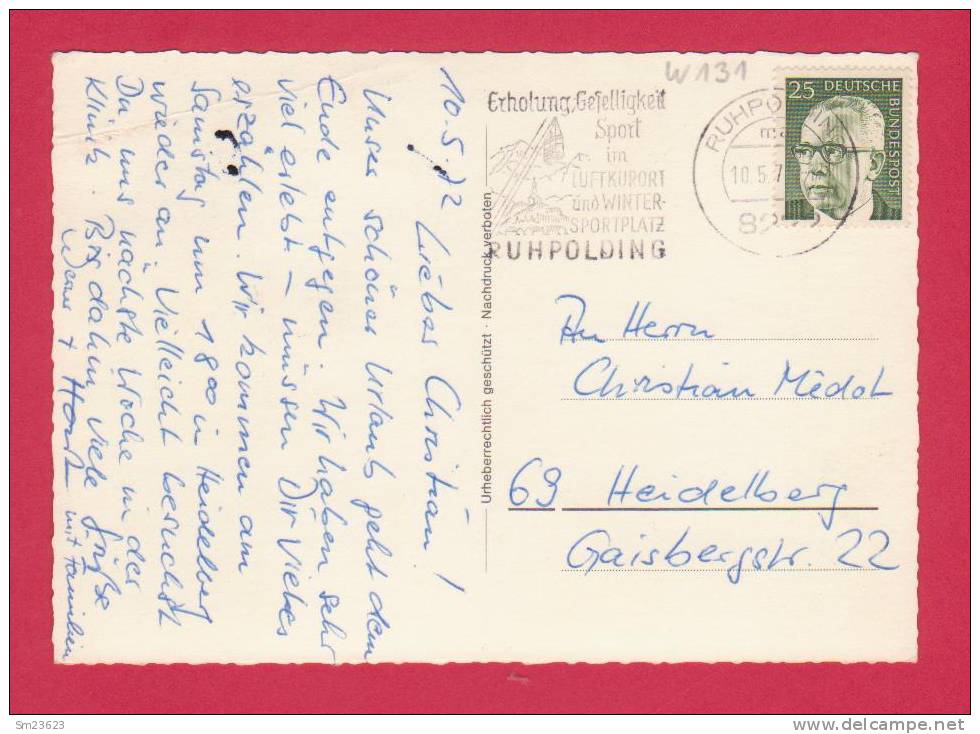 10.5.72 Lieber Christian!
Unser schöner Urlaub geht dem
Ende entgegen. Wir haben sehr
viel erlebt – müssen Dir Vieles
erzählen. Wir kommen am
Samstag um 1800 in Heidelberg
wieder an. Vielleicht besuchst
Du uns nächste Woche in der
Klinik. Bis dahin viele Grüße
+ Horst mit Familien
Urheberrechtlich geschützt · Nachdruck verboten
W131
Erholung, Geselligkeit
Sport
im
LUFTKURORT
und WINTER-
SPORTPLATZ
RUHPOLDING
RUHPOLDING
10.5.7
25 DEUTSCHE
BUNDESPOST
An Herrn
Christian Médot
69 Heidelberg
Gaisbergstr. 22
Sm23623
www.delcampe.net